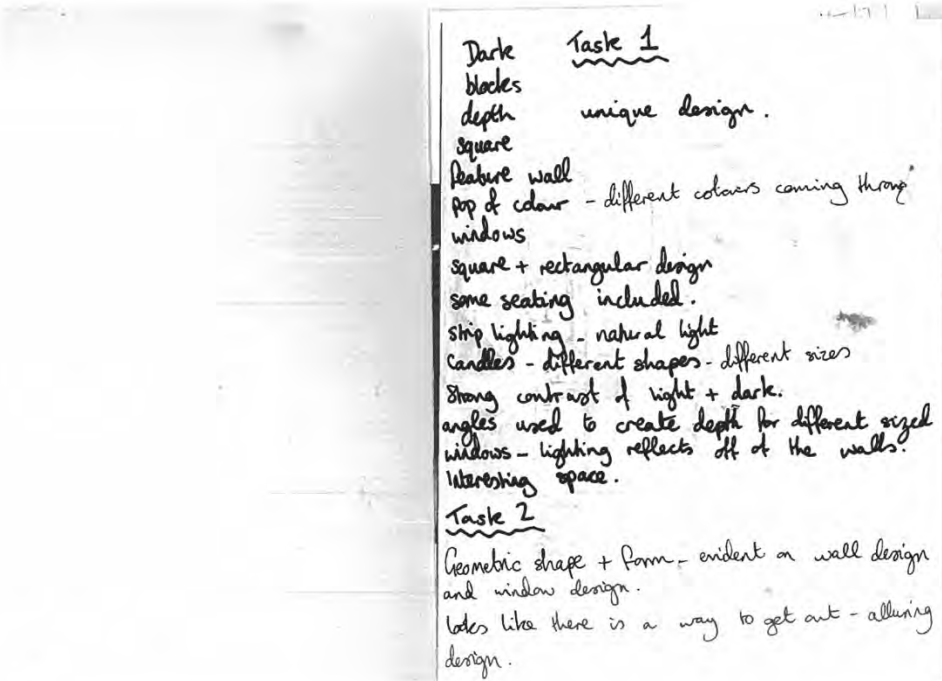 Dark Task 1
blocks
depth unique design.
square
feature wall
pop of colour - different colours coming throug
windows
square + rectangular design
some seating included.
strip lighting - natural light
Candles - different shapes - different sizes
Strong contrast of light + dark.
angles used to create depth for different sized
windows - lighting reflects off of the walls.
Interesting space.
Task 2
Geometric shape + form - evident on wall design
and window design.
looks like there is a way to get out - alluring
design.